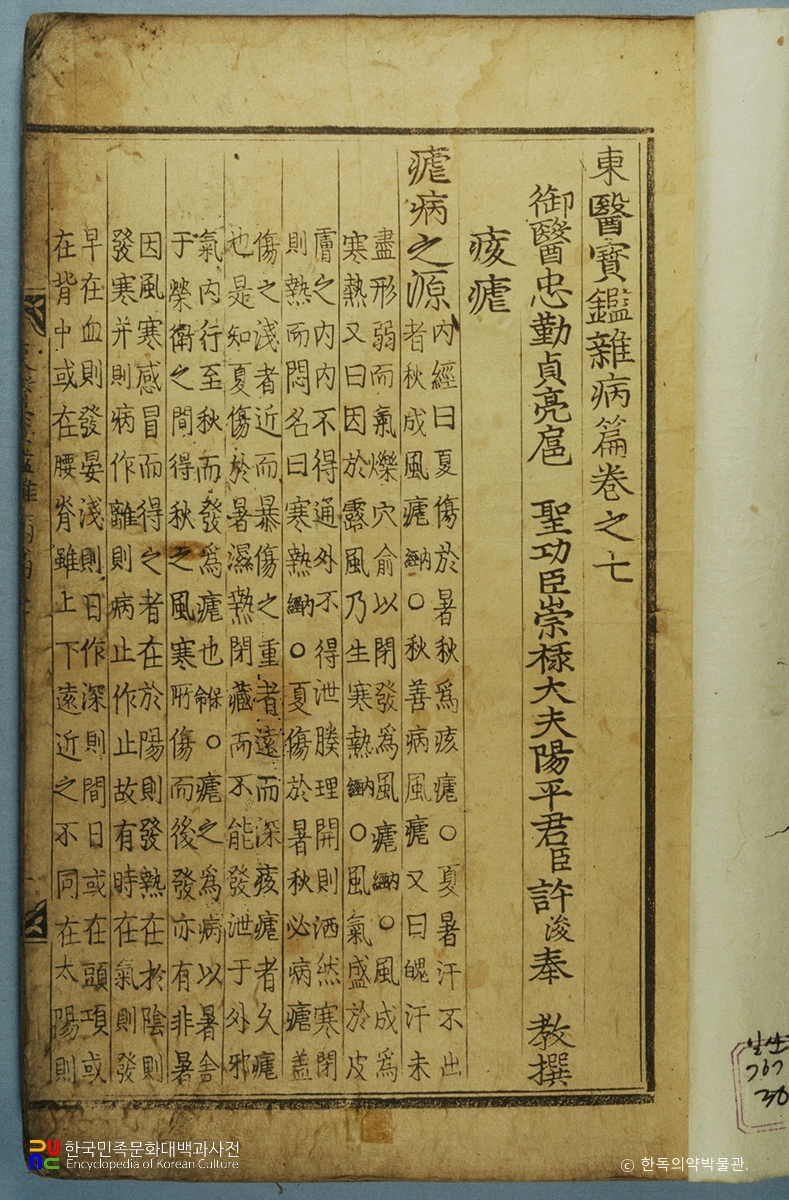 東醫寶鑑雜病篇卷之七
御醫忠勤貞亮扈 聖功臣崇祿大夫陽平君臣許浚奉 教撰
痎瘧
瘧病之源
內經曰夏傷於暑秋爲痎瘧○夏暑汗不出
者秋成風瘧內經○秋善病風瘧又曰魄汗未
盡形弱而氣爍穴俞以閉發爲風瘧內經○風成爲
寒熱又曰因於露風乃生寒熱內經○風氣盛於皮
膚之內內不得通外不得泄腠理開則洒然寒閉
則熱而悶名曰寒熱內經○夏傷於暑秋必病瘧蓋
傷之淺者近而暴傷之重者遠而深痎瘧者久瘧
也是知夏傷於暑濕熱閉藏而不能發泄于外邪
氣內行至秋而發爲瘧也保命○瘧之爲病以暑舍
于榮衛之間得秋之風寒所傷而後發亦有非暑
因風寒感冒而得之者在於陽則發熱在於陰則
發寒并則病作離則病止作止故有時在氣則發
早在血則發晏淺則日作深則間日或在頭項或
在背中或在腰脊雖上下遠近之不同在太陽則
한국민족문화대백과사전
Encyclopedia of Korean Culture
© 한독의약박물관.